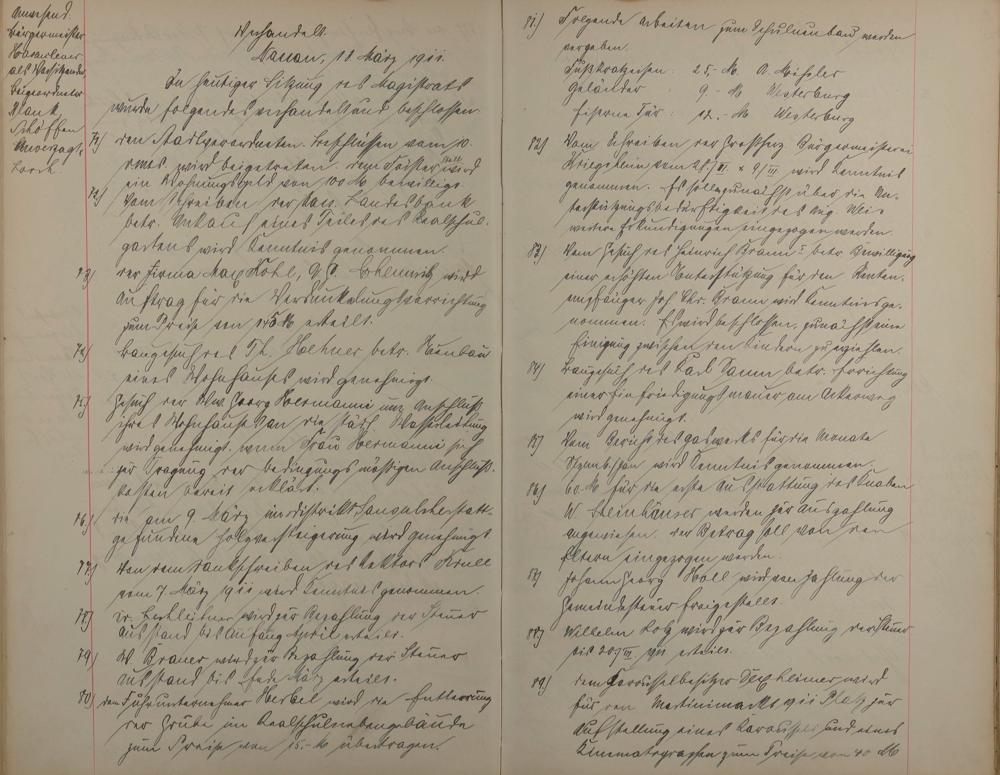 Anwesend
Bürgermeister
Hasenclever
als Vorsitzender
Beigeordneter
Blank
Schöffen
Unverzagt
Lorch.
Verhandelt
Nassau, 11 März 1911.
In heutiger Sitzung des Magistrats
wurde folgendes verhandelt und beschlossen
71) den Stadtverordneten-Beschlüssen vom 10.
wird beigetreten. dem Förster wird
ein Wohnungsgeld von 100 M bewilligt.
72) Vom Schreiben der Nass. Landesbank
betr. Ankauf eines Teiles des Realschul-
gartens wird Kenntnis genommen.
73) der Firma Max Kohl, A.G. Chemnitz wird
Auftrag für die Verdunkelungsvorrichtung
zum Preise von M erteilt.
74) Baugesuch des Th. Hehner betr. Neubau
eines Wohnhauses wird genehmigt
75) Gesuch der Wwe Georg Hermanni um Anschluß
ihres Wohnhauses an die städt. Wasserleitung
wird genehmigt, wenn Frau Hermanni sich
zur Tragung der bedingungsmäßigen Anschluß-
kosten bereit erklärt.
76) die am 9. März im Distrikt statt-
gefundene Holzversteigerung wird genehmigt
77) Von dem Dankschreiben des Rektors Krull
vom 7 März 1911 wird Kenntnis genommen.
78) wird zur Bezahlung der Steuer
Ausstand bis Anfang April erteilt.
79) W. Brauer wird zur Bezahlung der Steuer
Ausstand bis Ende März erteilt.
80) dem Fuhrunternehmer Herbel wird die Entleerung
der Grube im Realschulnebengebäude
zum Preise von 15.- M übertragen.
81) Folgende Arbeiten zum Schulneubau werden
vergeben.
Fußkratzeisen: 25,- M. A. Mißler
Geländer: 9.- M Westerburg
Eiserne Tür: 12.- M Westerburg
82) Vom Schreiben der Großherz. Bürgermeisterei
Kriegsheim vom wird Kenntnis
genommen. Es soll zunächst über die Un-
terstützungsbedürftigkeit des Aug.
weitere Erkundigungen eingezogen werden.
83) Vom Gesuch des Heinrich Bramm betr. Bewilligung
einer erhöhten Unterstützung für den Renten-
empfänger Joh. Chr. Bramm wird Kenntnis ge-
nommen. Es wird beschlossen, zunächst eine
Einigung zwischen den Kindern zu erzielen.
84) Baugesuch des Karl betr. Errichtung
einer Einfriedigungsmauer am
wird genehmigt.
85) Vom Bericht des Gaswerks für die Monate
wird Kenntnis genommen.
86) 60 M für die erste Ausstattung des Knaben
W. Steinhäuser werden zur Auszahlung
angewiesen. der Betrag soll von den
Eltern eingezogen werden.
87) Johann Georg Holl wird von Zahlung der
Gemeindesteuer freigestellt.
88) Wilhelm wird zur Bezahlung der Steuer
bis erteilt.
89) dem Karousselbesitzer wird
für den Martinimarkt 1911 Platz zur
Aufstellung eines Karoussels und eines
Kinematographen zum Preise von 40 M